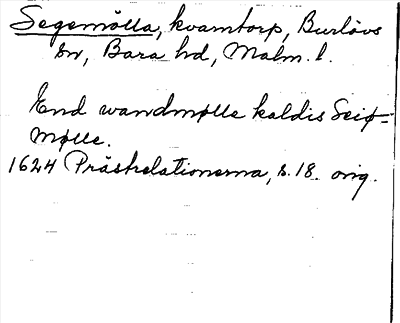 Segemölla, kvarntorp, Burlövs
sn, Bara hd, Malm. l.
End wandmølle kaldis Seiø=
mølle.
1624 Prästrelationerna, s. 18. orig.